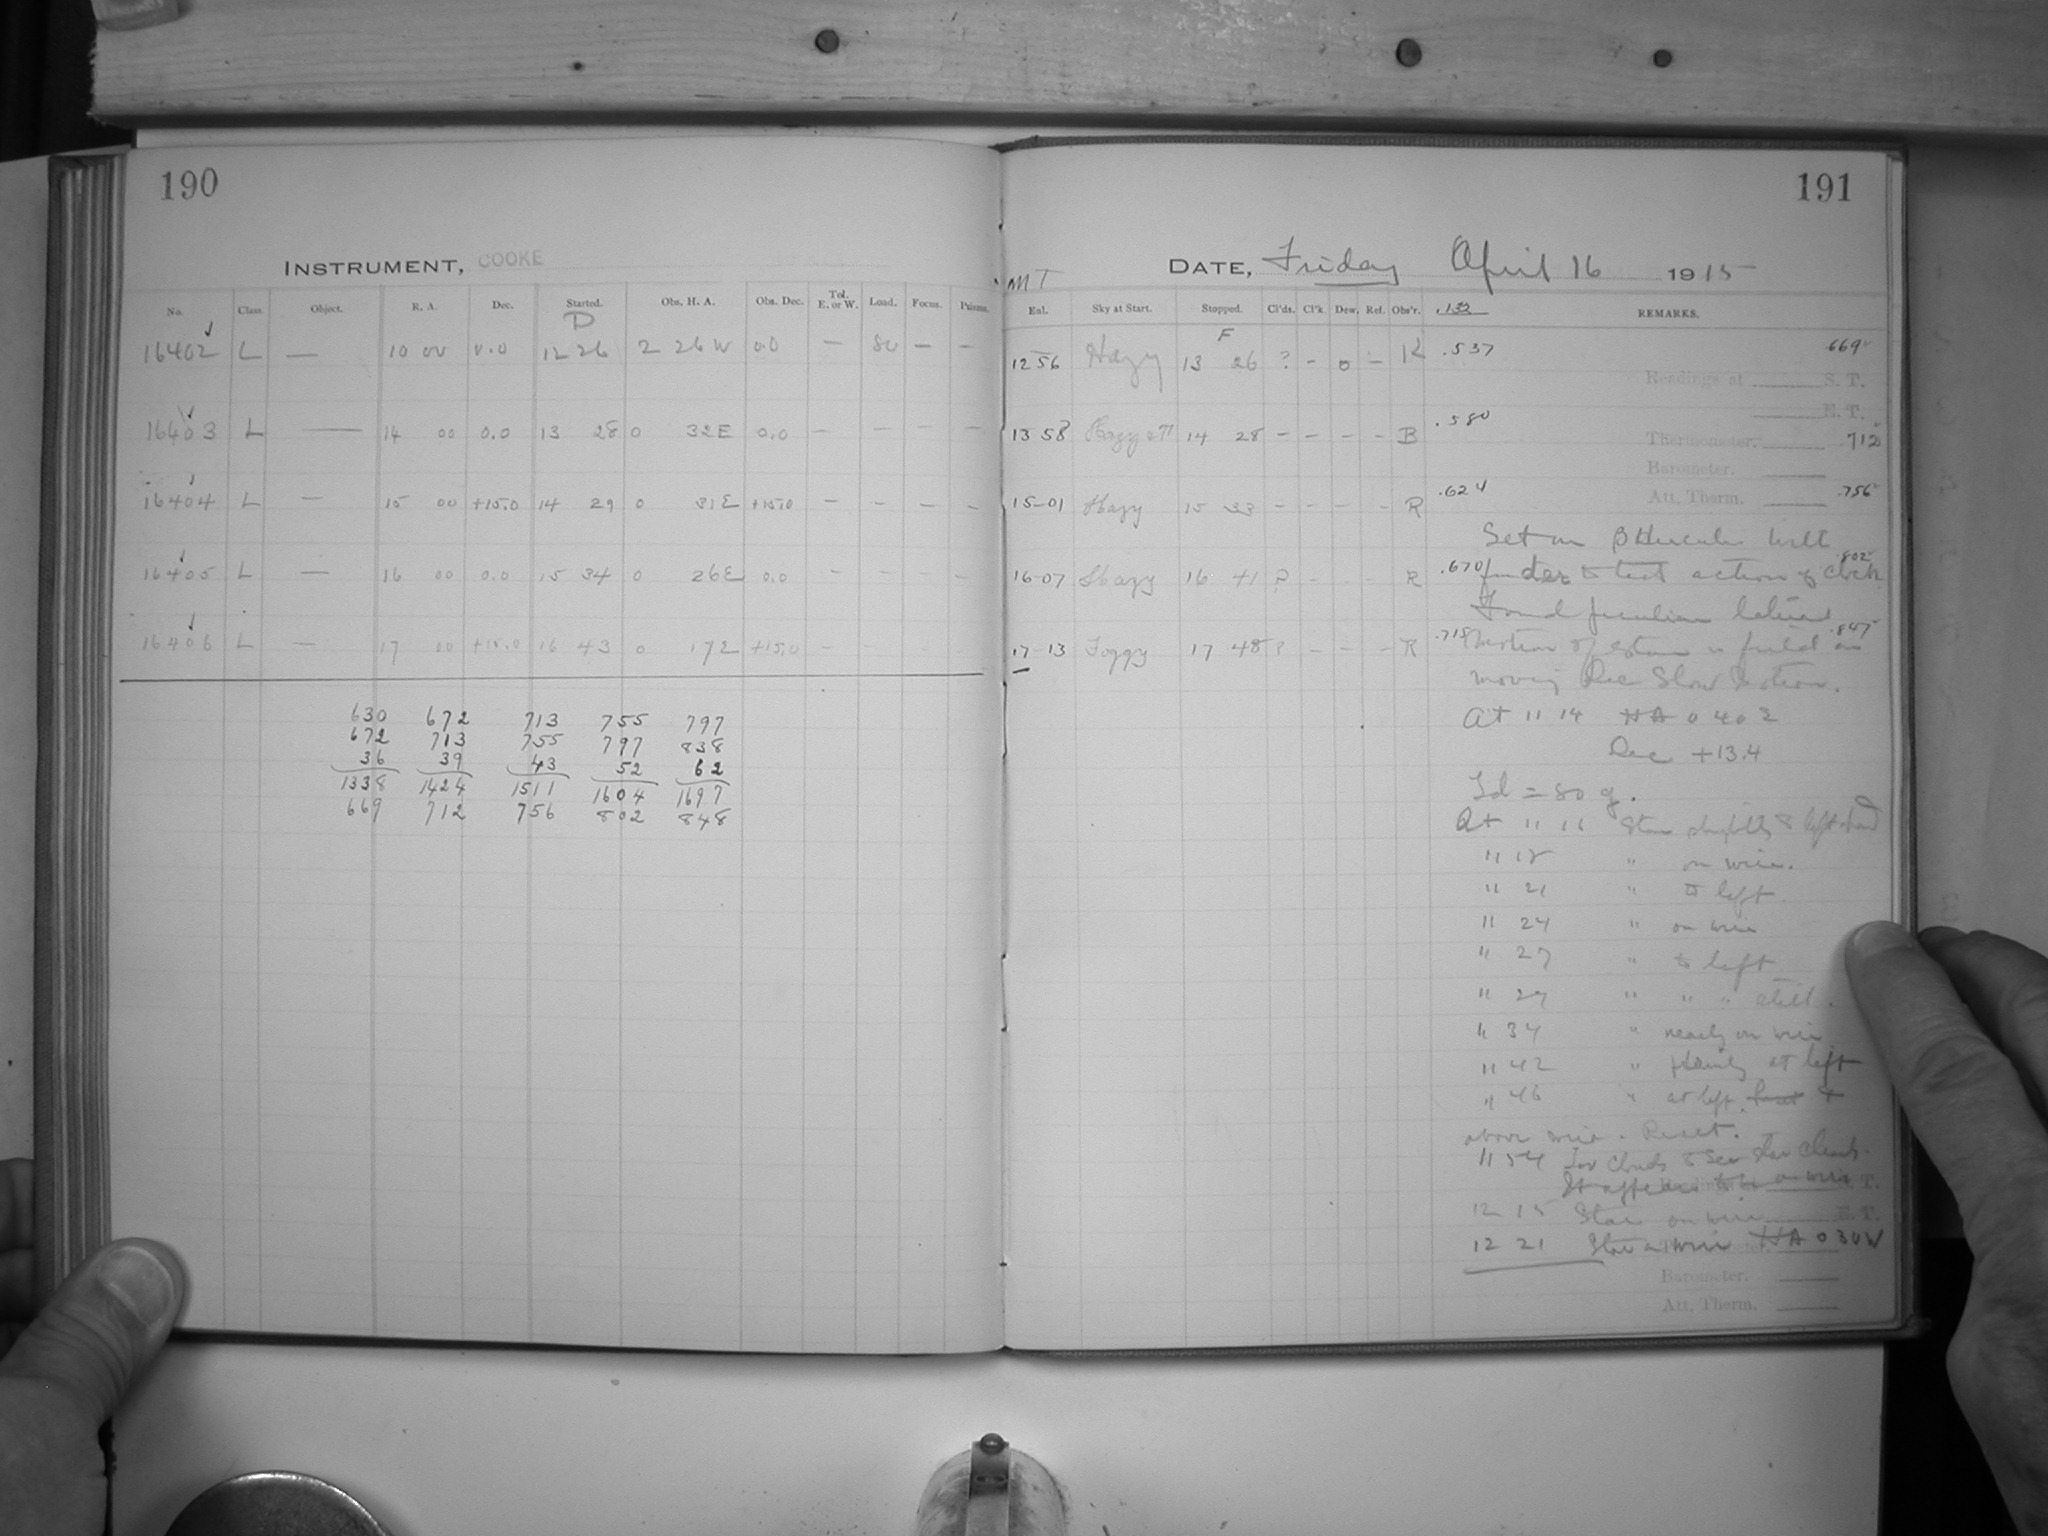 190
INSTRUMENT, COOKE
No. Class. Object. R. A. Dec. Started. Obs. H. A. Obs. Dec. Tel. E. or W. Load. Focus. Prisms.
D
16402 L — 10 00 0.0 12 26 2 26 W 0.0 — 80 — —
16403 L — 14 00 0.0 13 28 0 32 E 0.0 — — — —
16404 L — 15 00 +15.0 14 29 0 31 E +15.0 — — — —
16405 L — 16 00 0.0 15 34 0 26 E 0.0 — — — —
16406 L — 17 00 +15.0 16 43 0 17 E +15.0 — — — —
630 672 713 755 797
672 713 755 797 838
36 39 43 52 62
1338 1424 1511 1604 1697
669 712 756 802 848
191
MT DATE, Friday April 16 1915
Eal. Sky at Start. Stopped. Cl'ds. Cl'k. Dew. Ref. Obs'r. .132 REMARKS.
F
12 56 Hazy 13 26 ? - 0 - K .537 .669
Readings at S. T.
E. T.
13 58 Hazy 14 28 - - - - B .580
Thermometer. 712
Barometer.
15-01 Hazy 15 33 - - - - R .624 Att. Therm. .756
Set on β Herculis with
16-07 Hazy 16 41 ? - - - R .670 .802
finder to test action of clock
Found peculiar
17-13 Foggy 17 48 ? - - - R .715
motion of star in field on
moving Dec Slow Motion.
At 11 14 HA 0 40
Dec +13.4
Ld = 80 g.
At 11 16 Star slightly to left hand
11 18 " on wire.
11 21 " to left
11 24 " on wire
11 27 " to left
11 29 " " " still.
11 34 " nearly on wire
11 42 " plainly at left
11 46 " at left
above wire. Reset.
11 54 Too cloudy to see star clearly.
It appears to be on wire
12 15 Star on wire
12 21 Star on wire HA 0 30 W
Barometer.
Att. Therm.